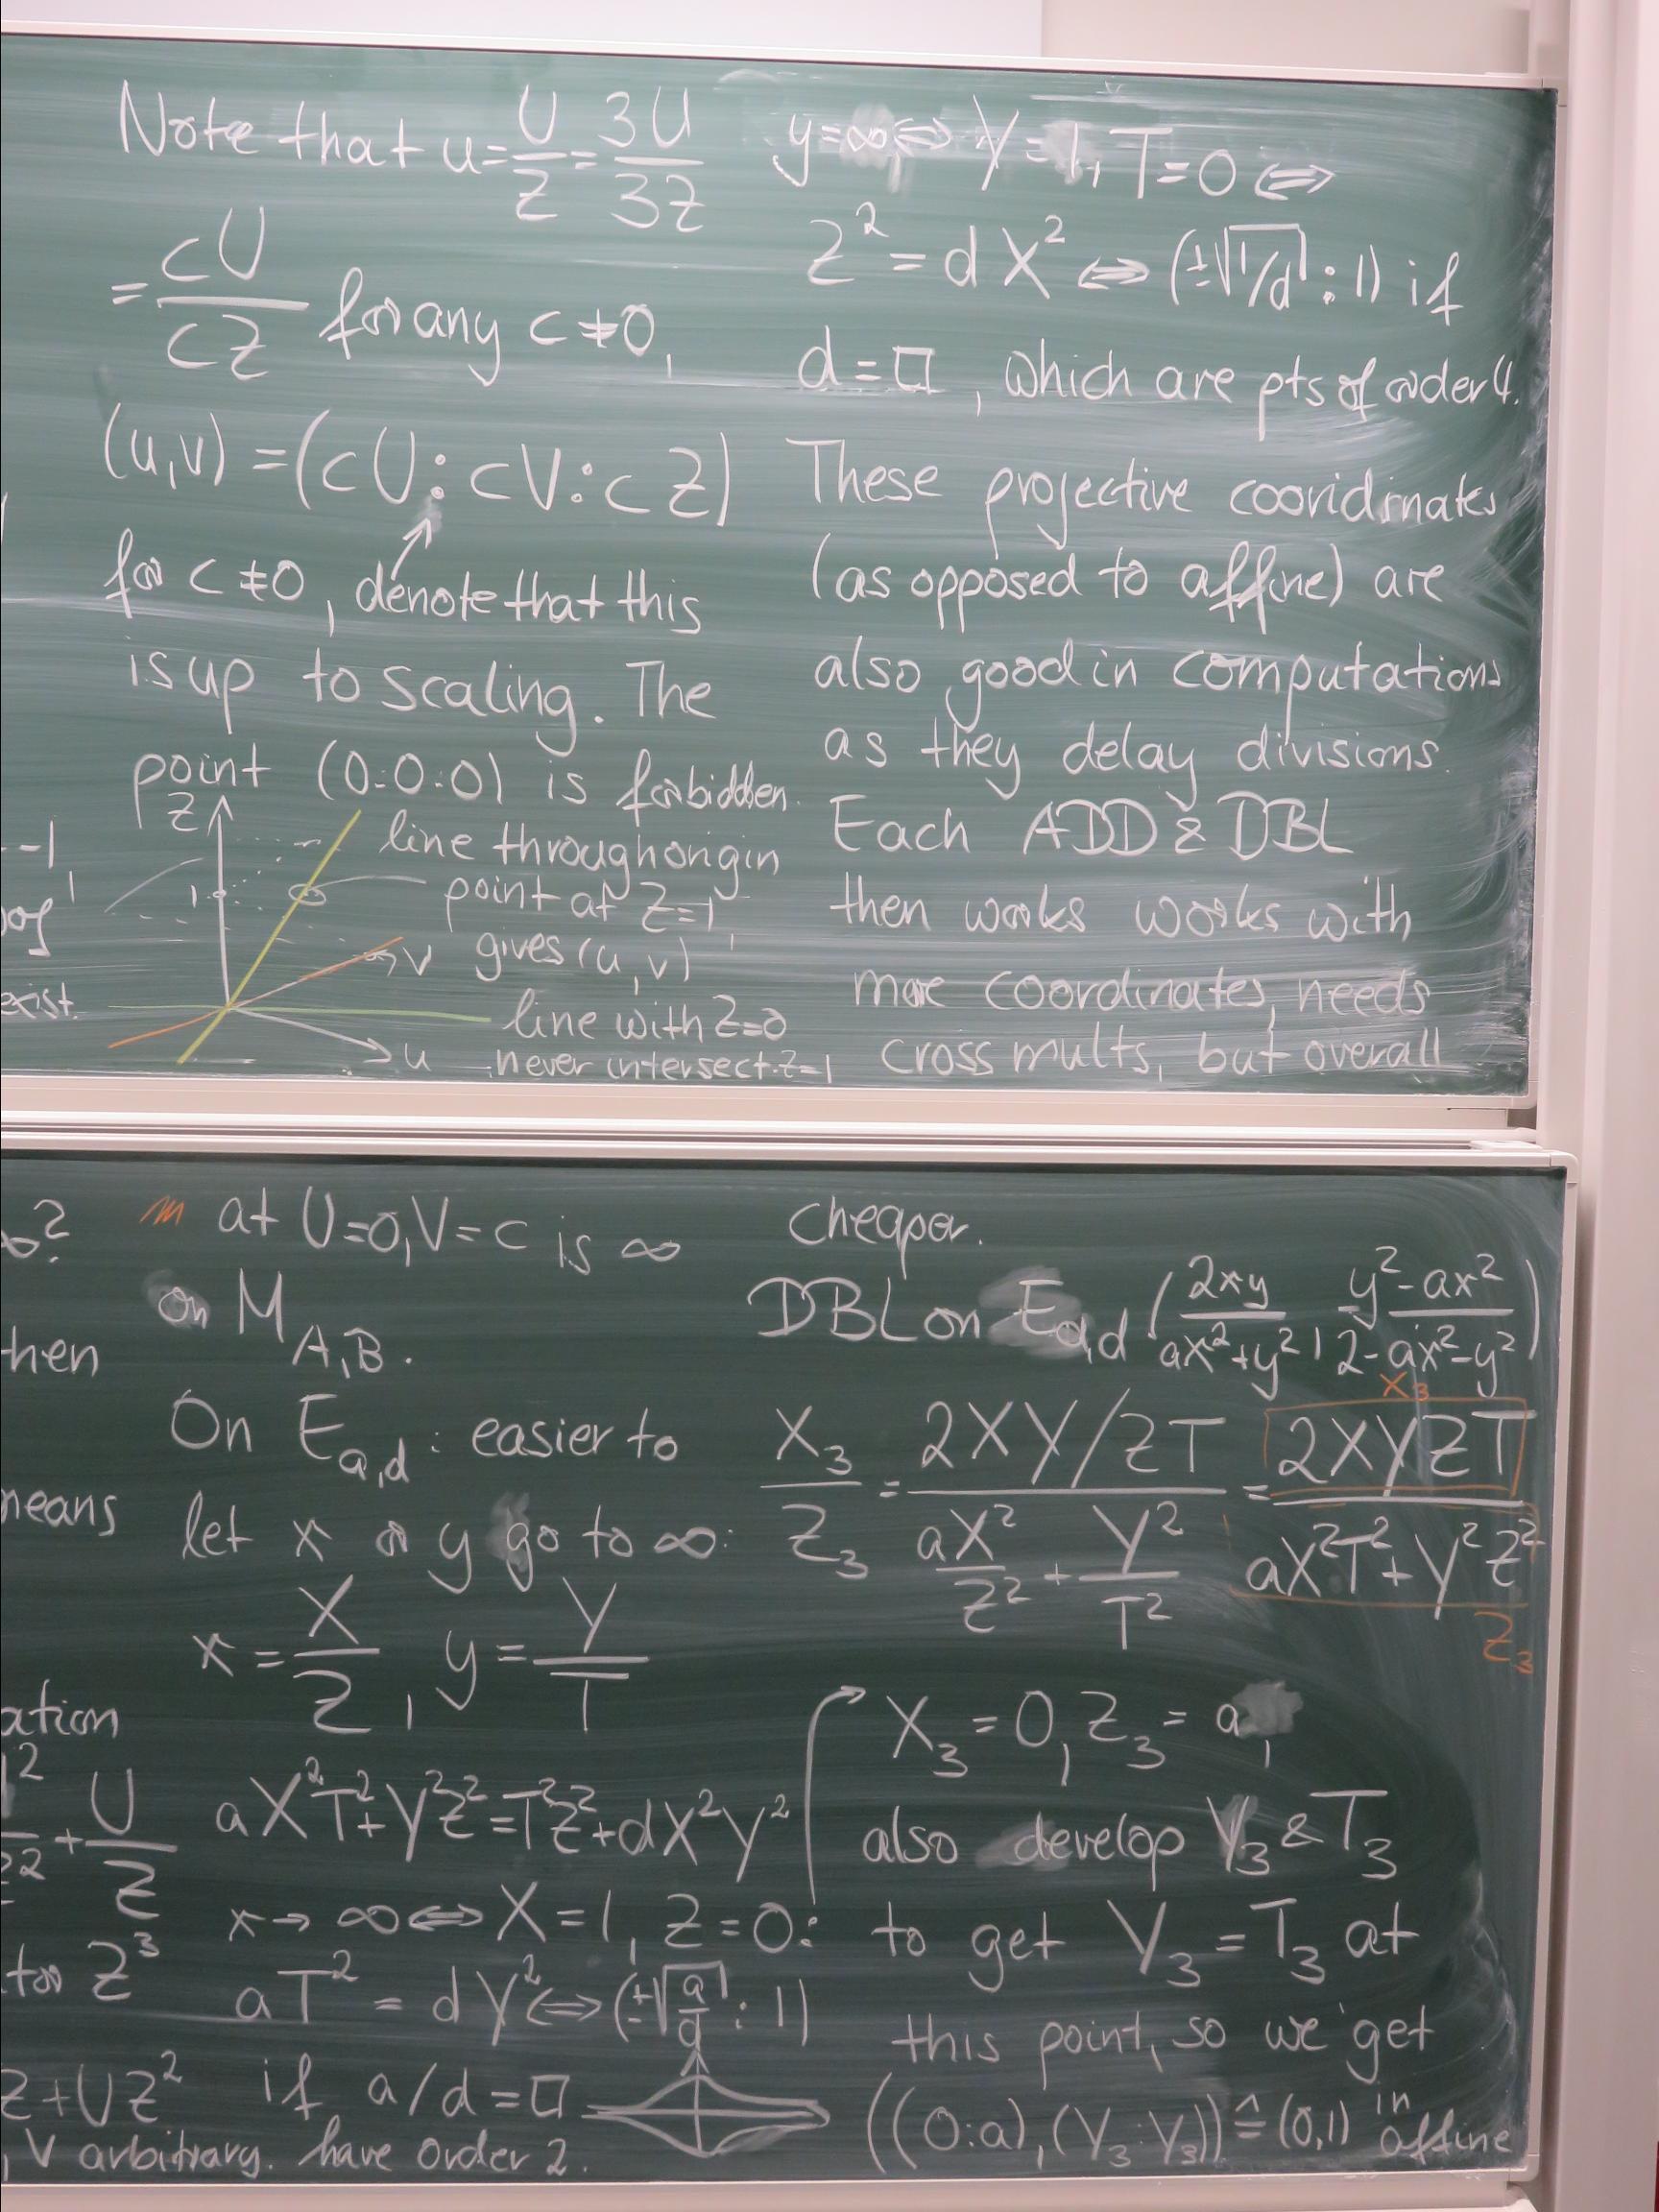 Note that u = U/Z = 3U/3Z
= cU/cZ for any c ≠ 0,
(u,v) = (cU : cV : cZ)
for c ≠ 0, denote that this
is up to scaling. The
point (0:0:0) is forbidden.
Z
line through origin
1
point at Z=1,
gives (u,v)
v
line with Z=0
u
never intersect Z=1
-1
exist.
y = ∞ ⇔ Y = 1, T = 0 ⇔
Z² = dX² ⇔ (±√1/d : 1) if
d = □, which are pts of order 4.
These projective cooridinates
(as opposed to affine) are
also good in computations
as they delay divisions.
Each ADD & DBL
then works works with
more coordinates, needs
cross mults, but overall
∞?
hen
means
ation
+ U/Z
for Z³
Z + UZ²
, V arbitrary.
at U=0, V=c is ∞
on M_{A,B}.
On E_{a,d} : easier to
let x or y go to ∞:
x = X/Z, y = Y/T
aX²T² + Y²Z² = T²Z² + dX²Y²
x → ∞ ⇔ X = 1, Z = 0:
aT² = dY² ⇔ (±√a/d : 1)
if a/d = □
have order 2.
cheaper.
DBL on E_{a,d} (2xy/(ax²+y²), (y²-ax²)/(2-ax²-y²))
X₃
X₃/Z₃ = (2XY/ZT)/(aX²/Z² + Y²/T²) = 2XYZT/(aX²T² + Y²Z²)
Z₃
X₃ = 0, Z₃ = a,
also develop Y₃ & T₃
to get Y₃ = T₃ at
this point, so we get
((0:a), (Y₃:Y₃)) ≙ (0,1) in affine